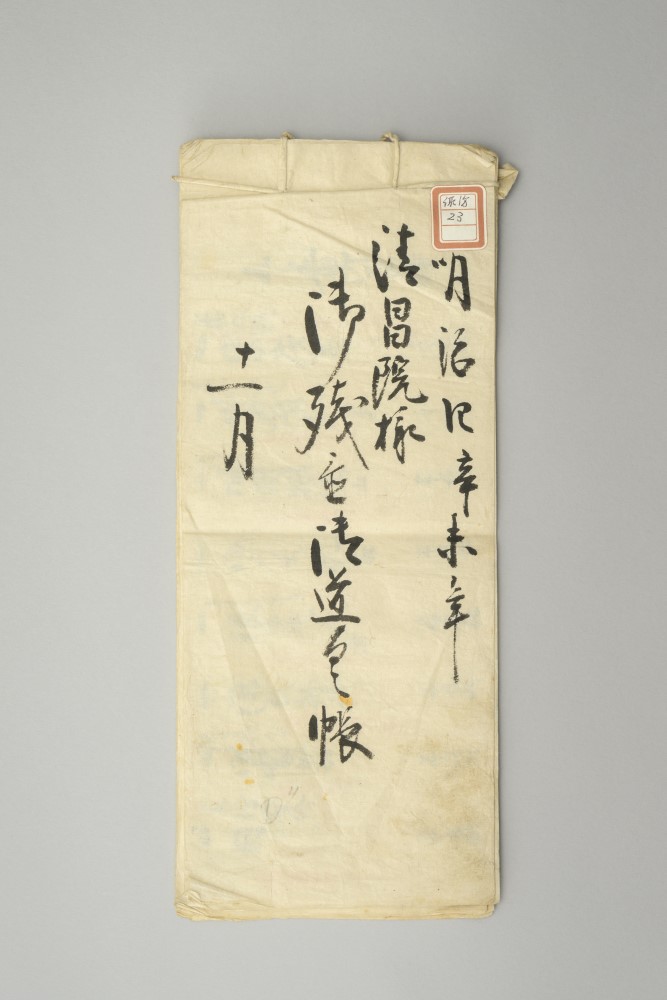 明治四辛未年
清昌院様
御残置御道具帳
十一月
23